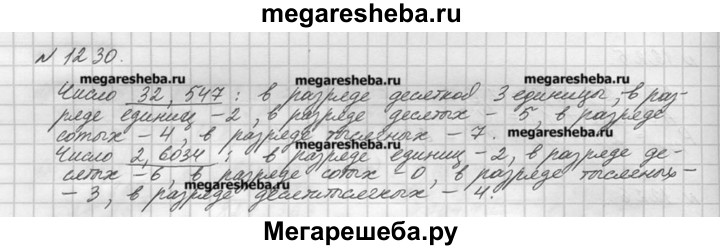 megaresheba.ru
N 1230.
megaresheba.ru megaresheba.ru megaresheba.ru
Число 32,547: в разряде десятков 3 единицы, в раз-
ряде единиц - 2, в разряде десятых - 5, в разряде
сотых - 4, в разряде тысячных - 7.
Число 2,6034: в разряде единиц - 2, в разряде де-
сятых - 6, в разряде сотых - 0, в разряде тысячных -
- 3, в разряде десятитысячных - 4.
megaresheba.ru megaresheba.ru megaresheba.ru
Мегарешеба.ру